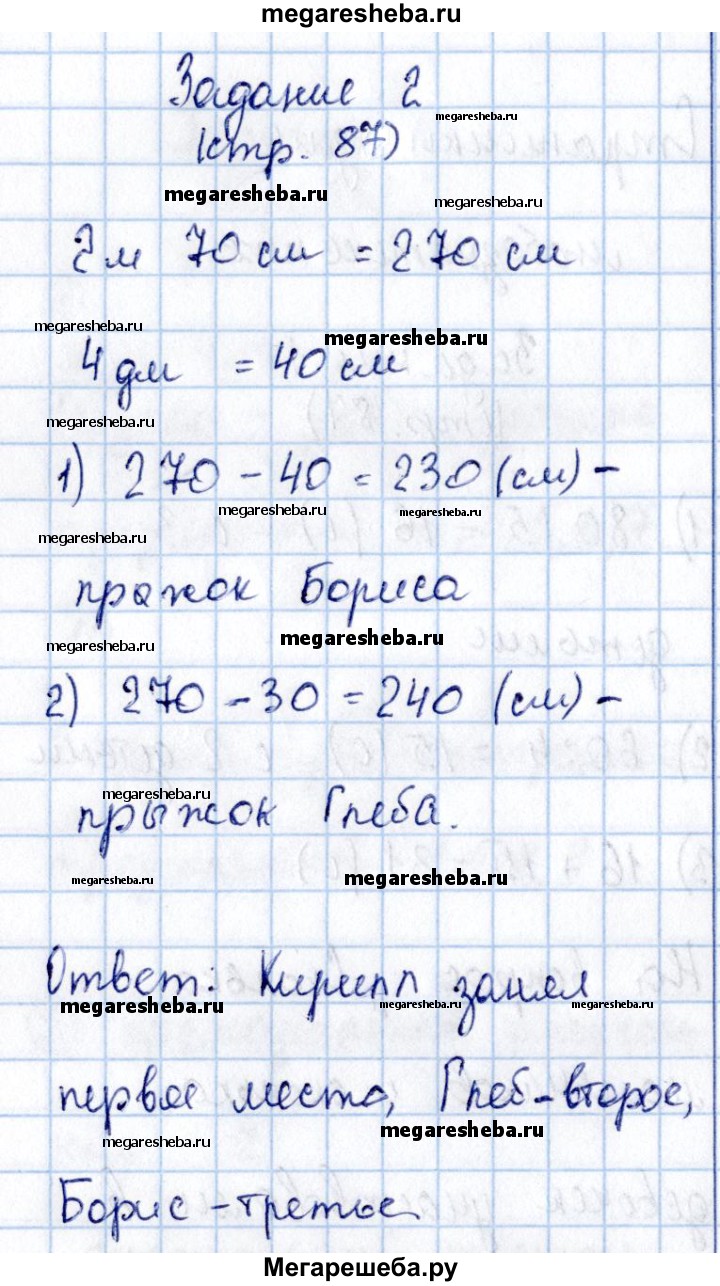 megaresheba.ru
Задание 2
megaresheba.ru
(стр. 87)
megaresheba.ru
megaresheba.ru
2 м 70 см = 270 см
megaresheba.ru
megaresheba.ru
4 дм = 40 см
megaresheba.ru
1) 270 - 40 = 230 (см) -
megaresheba.ru
megaresheba.ru
megaresheba.ru
прыжок Бориса
megaresheba.ru
megaresheba.ru
2) 270 - 30 = 240 (см) -
megaresheba.ru
прыжок Глеба.
megaresheba.ru
megaresheba.ru
Ответ: Кирилл занял
megaresheba.ru
megaresheba.ru
megaresheba.ru
первое место, Глеб - второе,
megaresheba.ru
megaresheba.ru
Борис - третье
Мегарешеба.ру